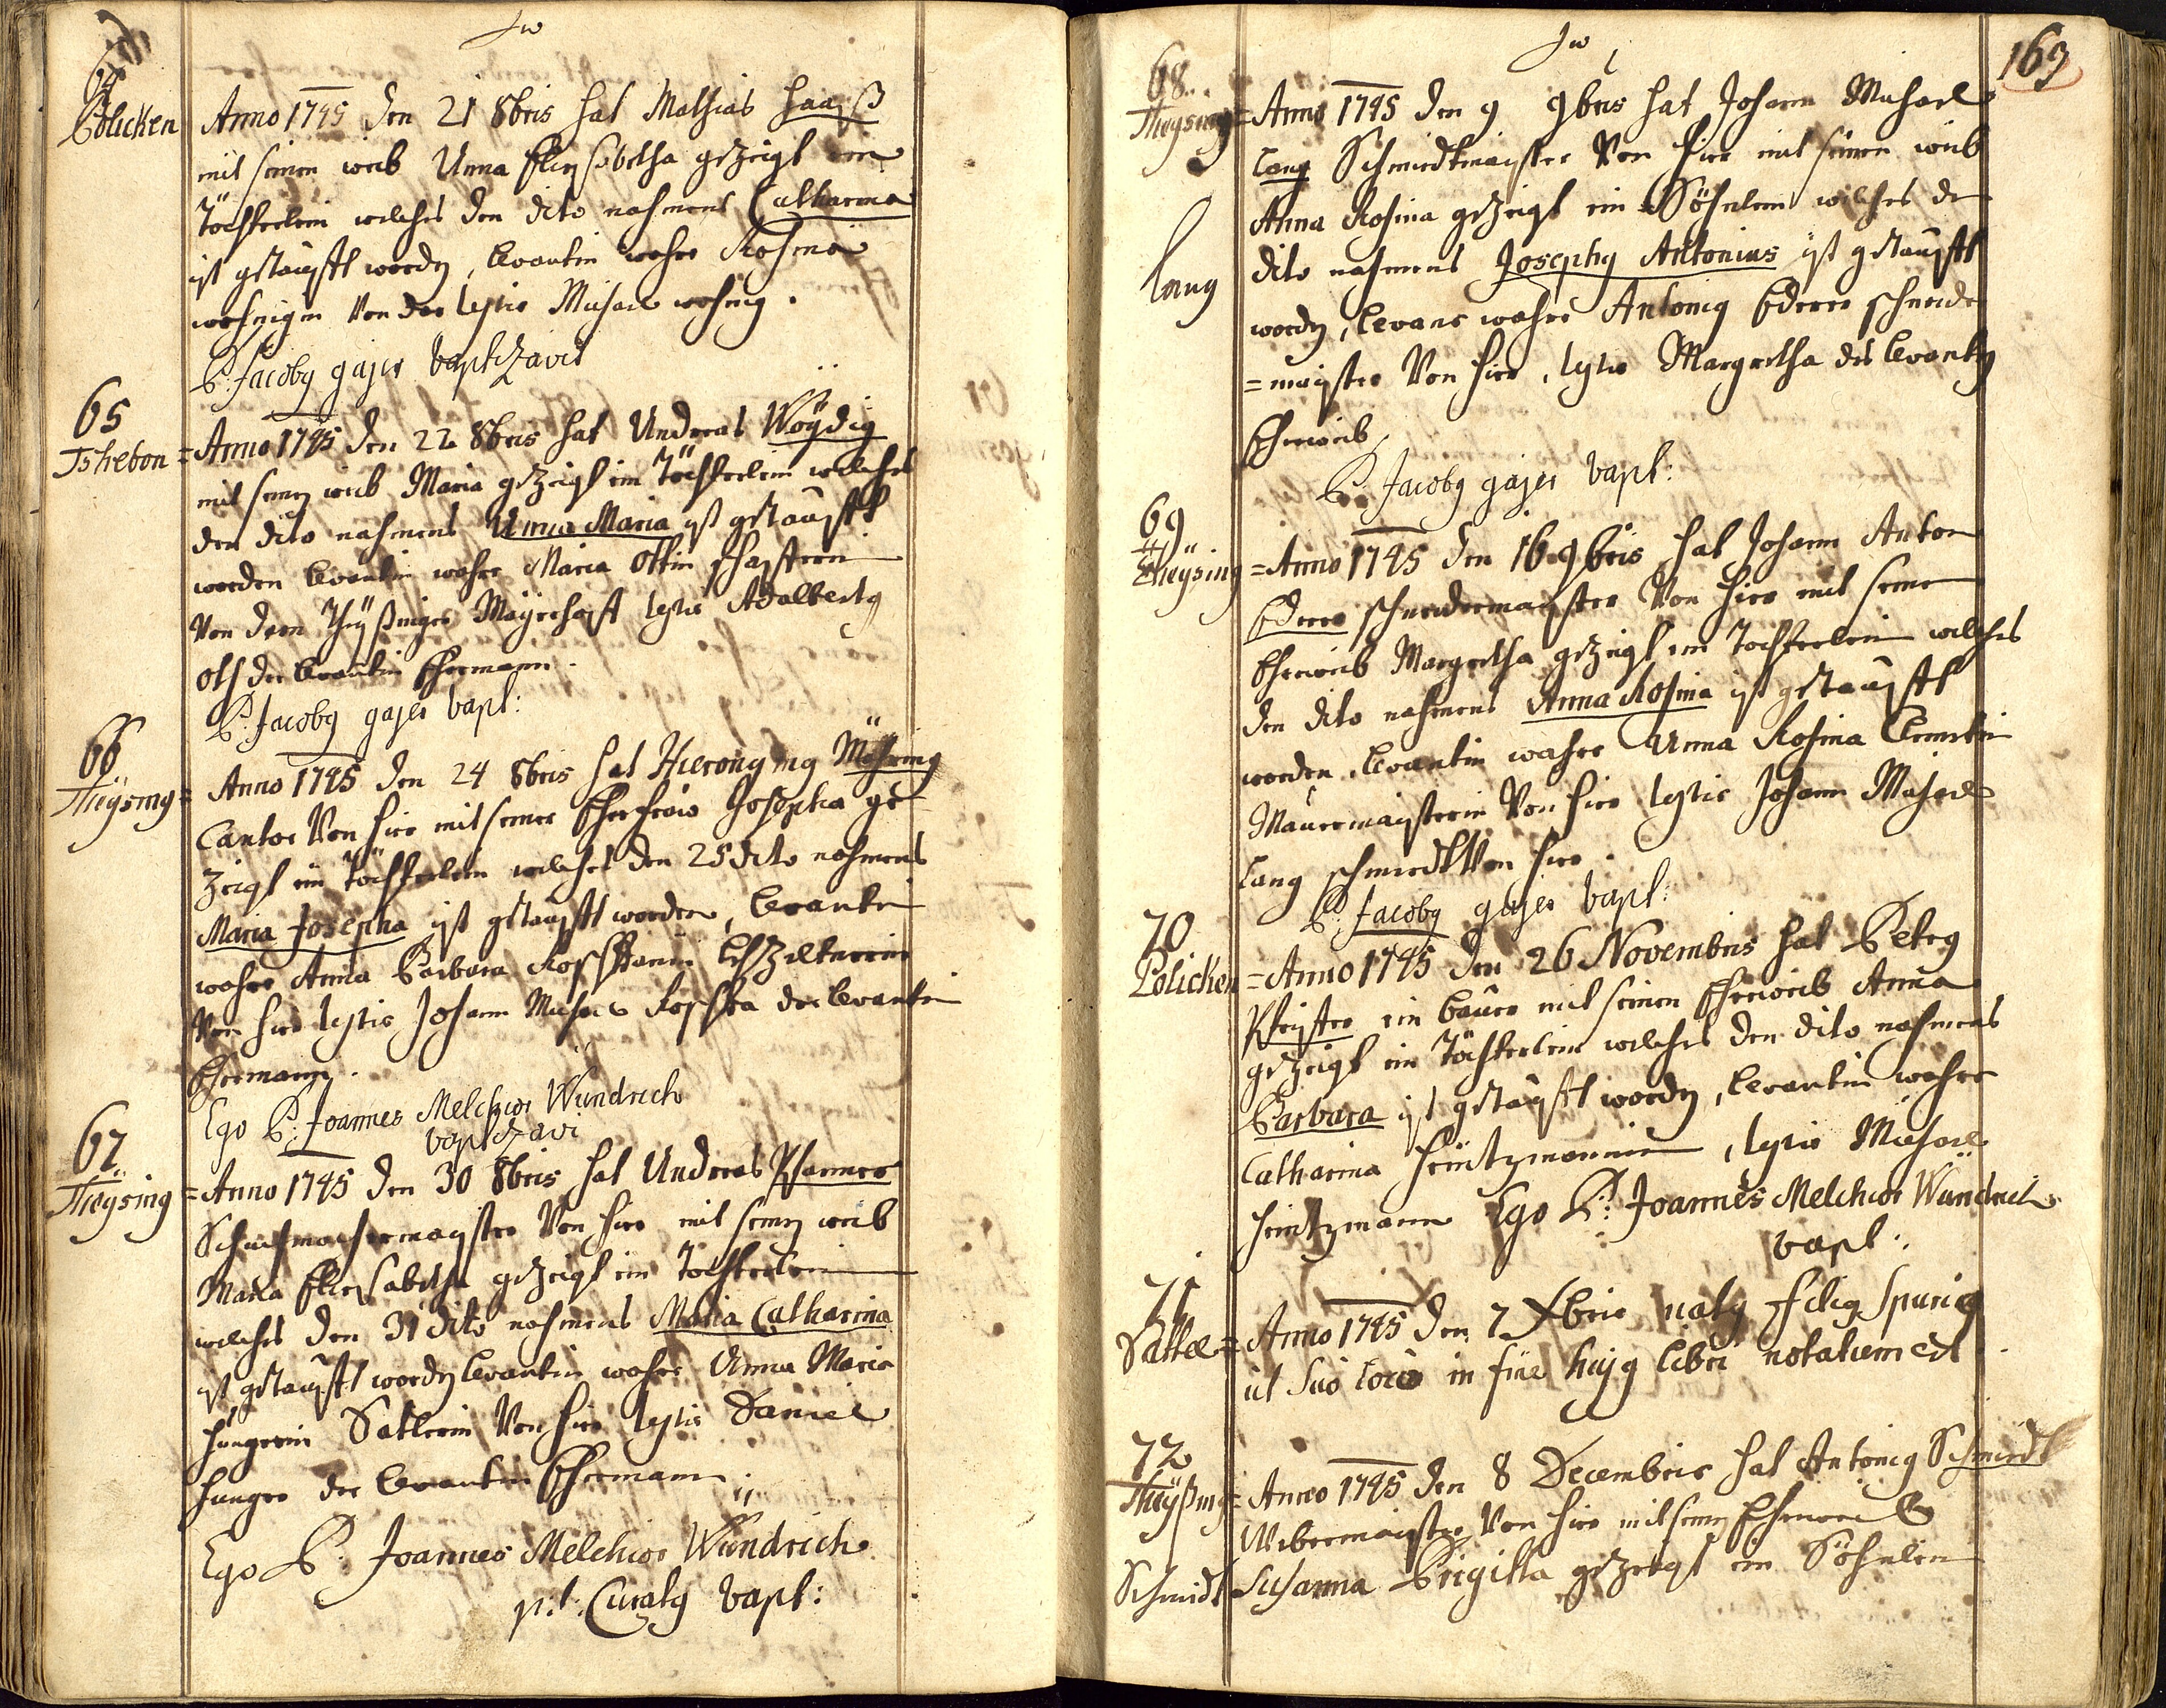 64
Policken
Anno 1745 den 21 8bris hat Mathias Haaß
mit seinen weib Anna Elisabetha gezeigt ein
Töchterlein welches den dito nahmens Catharina
ist getaufft worden, levantin wahre Rosina
von der testis Michael
P: Jacobg gajer baptizavit
65
Tshebon = Anno 1745 den 22 8bris hat Andreas Woydig
mit seinen weib Maria gezeigt ein Töchterlein welches
den dito nahmens Anna Maria ist getaufft
worden levantin wahre Maria Ottin schafferin
von dem Theyßinger Mayerhoff testis Adalbertg
Ott der levantin Ehemann.
P: Jacobg gajer bapt:
66
Theysing = Anno 1745 den 24 8bris hat Hieronymg Möhring
Cantor von hier mit seiner Ehefrau Josepha ge
zeigt ein Töchterlein welches den 25 dito nahmens
Maria Josepha ist getaufft worden, levantin
wahre Anna Barbara Lebzelterin
von hier testis Johann Michael der levantin
Ehemann.
Ego P: Joannes Melchior Wündrich
baptizavi
67
Theysing = Anno 1745 den 30 8bris hat Andreas Pfarrer
Schuhmachermayster von hier mit seinen weib
Maria Eliesabetha gezeigt ein Töchterlein
welches den 31 dito nahmens Maria Catharina
ist getaufft worden levantin wahre Anna Maria
Hungerin Satlerin von hier testis Daniel
Hunger der levantin Ehemann.
Ego P: Joannes Melchior Wündrich
p:t: Curatg bapt:
169
68
Theysing = Anno 1745 den 9 9bris hat Johann Michael
Lang Schmiedtmayster von hier mit seinen weib
Anna Rosina gezeigt ein Söhnlein welches den
Lang dito nahmens Josephg Antonius ist getaufft
worden, levans wahre Antonig Ederer schneider
= mayster von hier, testis Margretha des levanten
Eheweib
P: Jacobg gajer bapt:
69
Theysing = Anno 1745 den 16 9bris hat Johann Anton
Ederer schneidermayster von hier mit seinem
Eheweib Margretha gezeigt ein Tochterlein welches
den dito nahmens Anna Rosina ist getaufft
worden, levantin wahre Anna Rosina
Maurermaysterin von hier testis Johann Michael
Lang schmiedt von hier.
P: Jacobg gajer bapt:
70
Policken = Anno 1745 den 26 Novembris hat Petrg
ein bauer mit seinen Eheweib Anna
gezeigt ein Töchterlein welches den dito nahmens
Barbara ist getaufft worden, levantin wahre
Catharina Heintzmannin, testis Michael
Heintzmann Ego P: Joannes Melchior Wündrich
bapt:
71
Sattel = Anno 1745 den 7 Xbris natg filig spurig
ut suo loco in fine hujg libri notatum est
72
Theyßing = Anno 1745 den 8 Decembris hat Antonig Schmiedt
Webermayster von hier mit seinen Eheweib
Schmidt Susanna Brigitta gezeigt ein Söhnlein